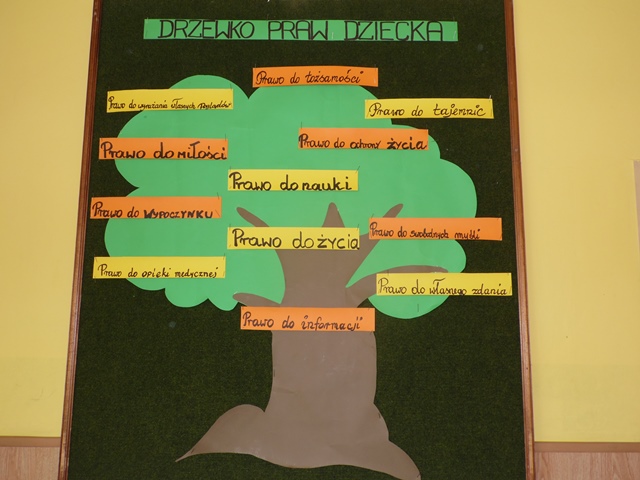 DRZEWKO PRAW DZIECKA
Prawo do tożsamości
Prawo do wyrażania własnych poglądów
Prawo do tajemnic
Prawo do ochrony życia
Prawo do miłości
Prawo do nauki
Prawo do WYPOCZYNKU
Prawo do swobodnych myśli
Prawo do życia
Prawo do opieki medycznej
Prawo do własnego zdania
Prawo do informacji